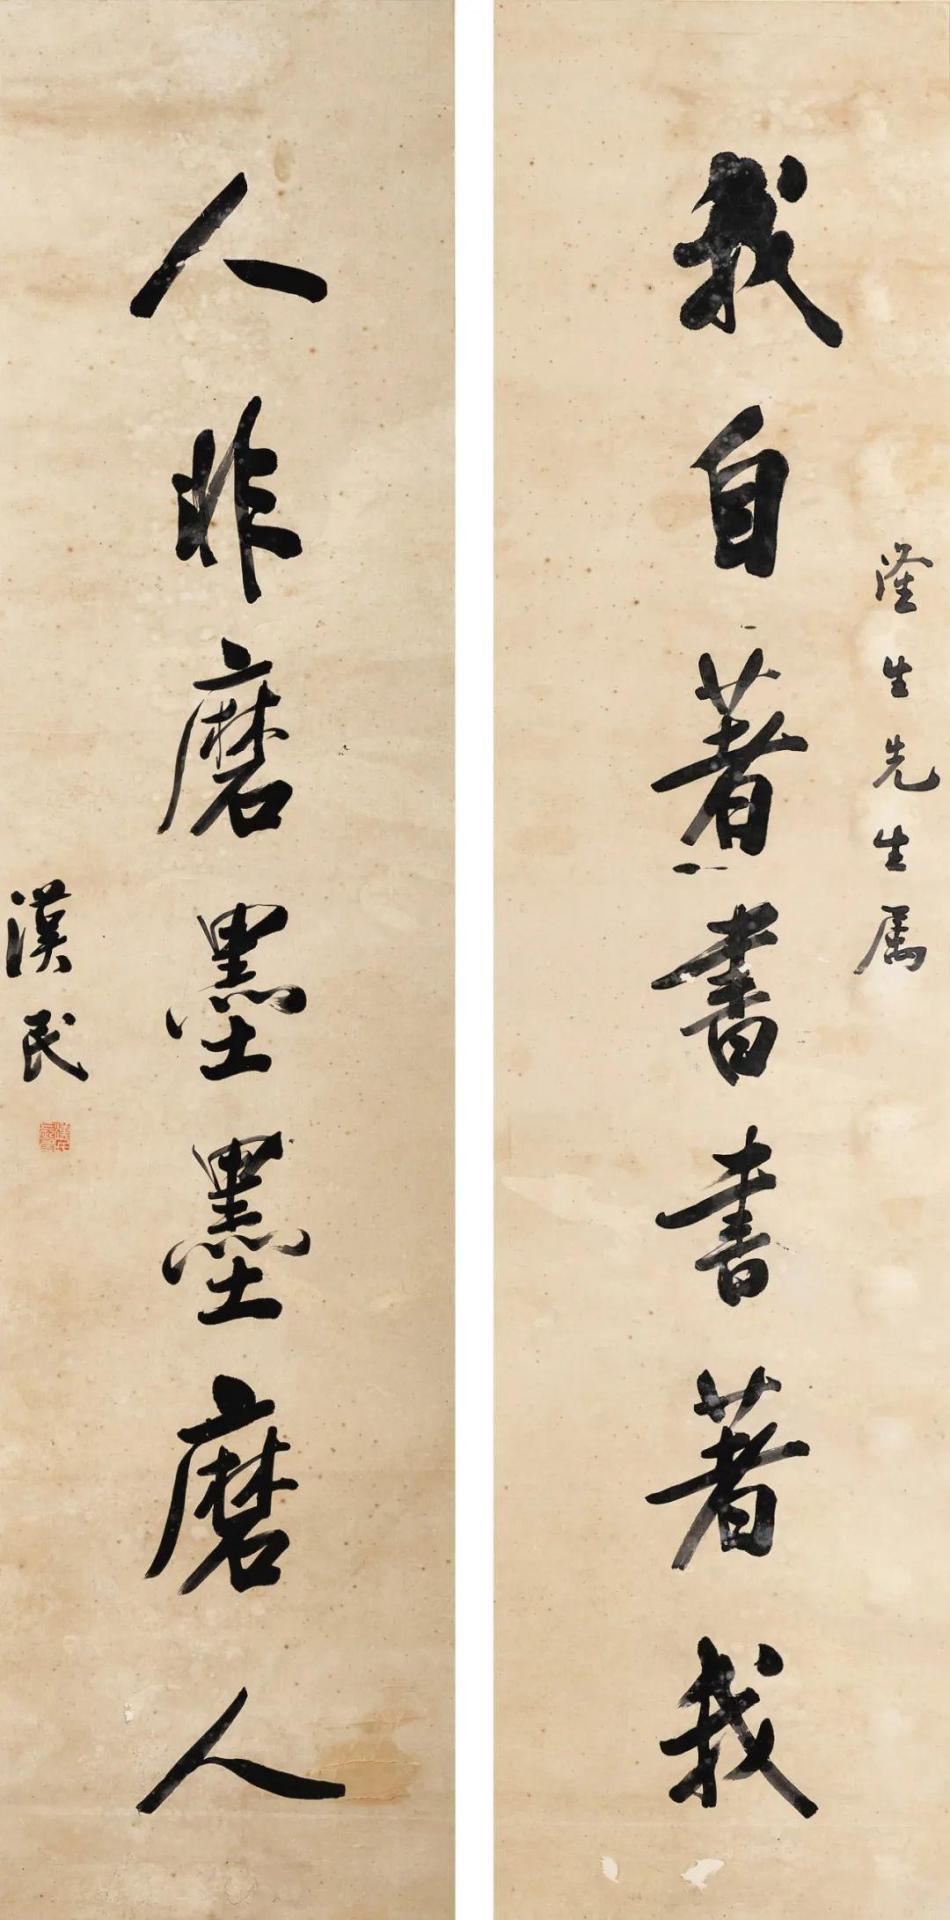 我自著書書著我
滏生先生属
人非磨墨墨磨人
漢民